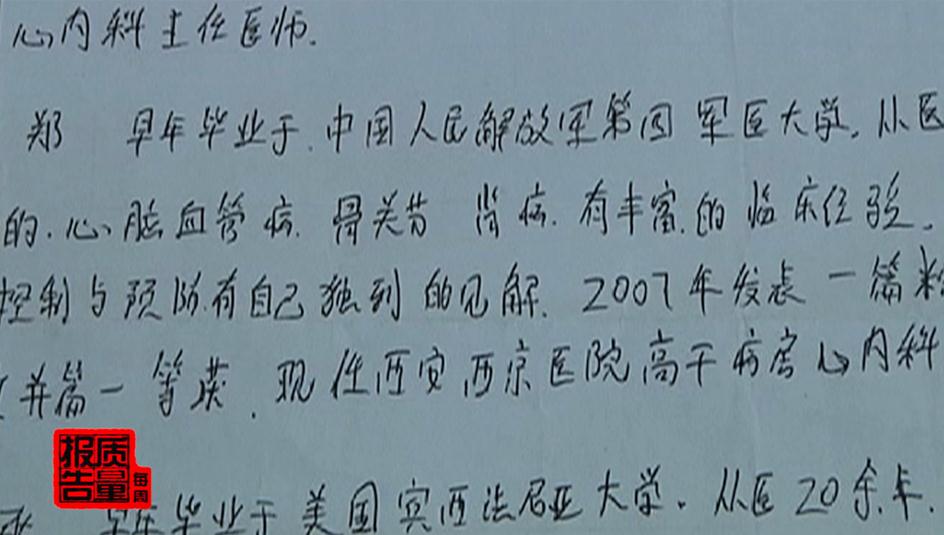 心内科主任医师.
郑 早年毕业于.中国人民解放军第四军医大学.从医
的.心、脑血管病.骨关节 肾病.有丰富的临床经验.
控制与预防有自己独到的见解.2007年发表一篇
并篇一等奖.现任西安西京医院高干病房心内科
早年毕业于美国宾西法尼亚大学.从医20余年.
质量报告
每周